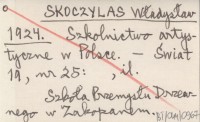 SKOCZYLAS Władysław
1924. Szkolnictwo artys-
tyczne w Polsce. – Świat
19, nr 25: , il.
Szkoła Przemysłu Drzew-
nego w Zakopanem.